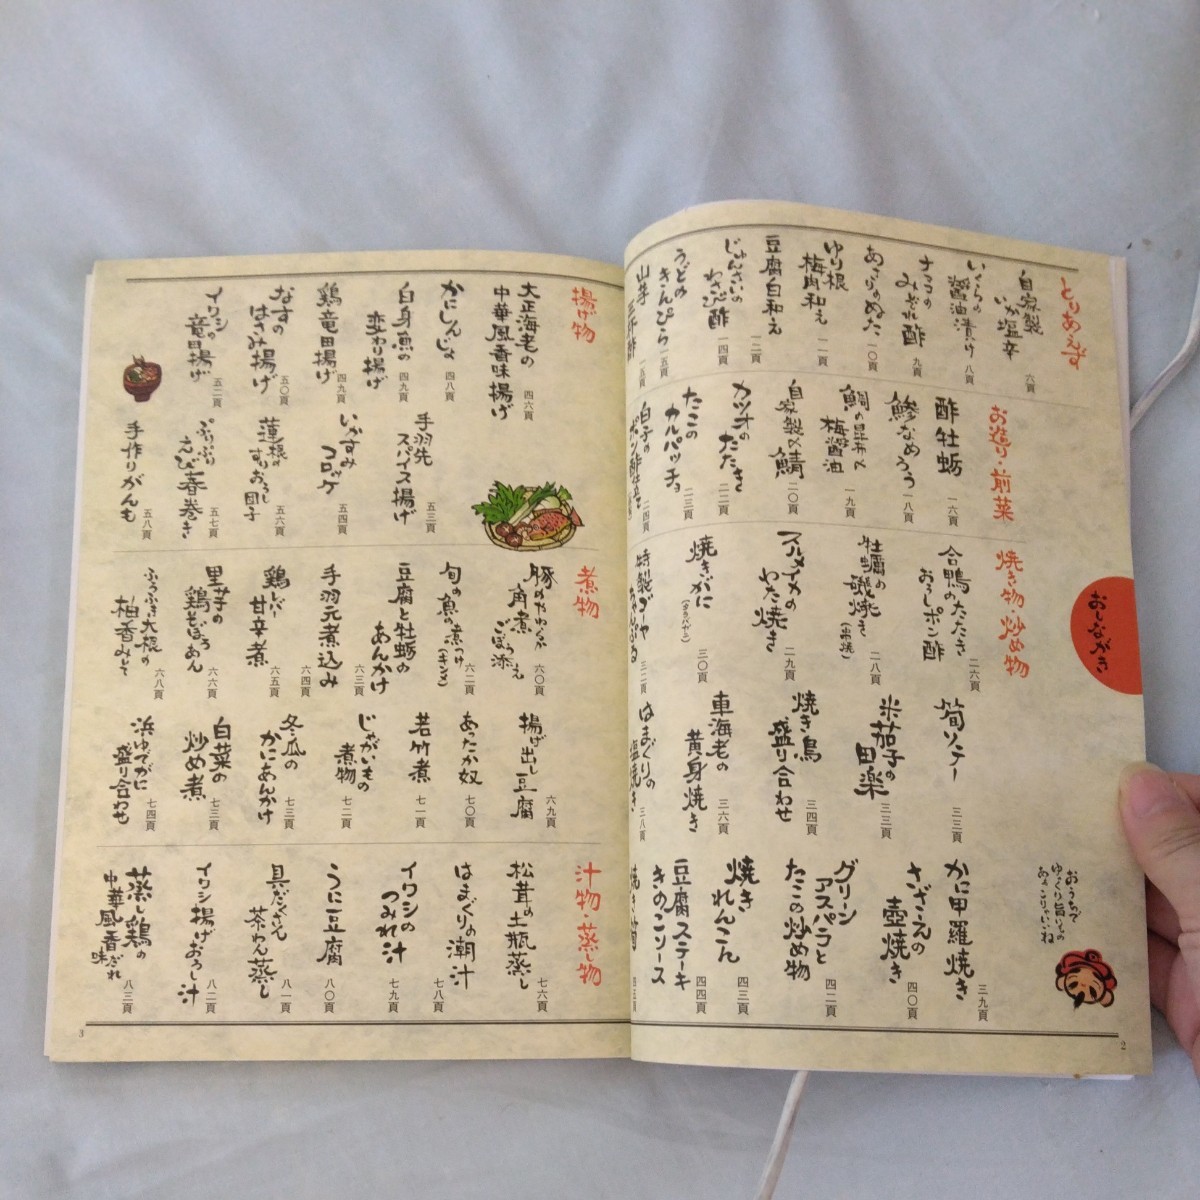 おしながき
とりあえず
自家製
いか塩辛
六頁
いくらの
醤油漬け
八頁
ナマコの
みぞれ酢
九頁
あさりのぬた
一〇頁
ゆり根
梅肉和え
一一頁
豆腐白和え
一二頁
じゅんさいの
わさび酢
一四頁
うどの
きんぴら
一五頁
山芋
三杯酢
一五頁
お造り・前菜
酢牡蛎
一六頁
鯵なめろう
一八頁
鯛の昆布〆
梅醤油
一九頁
自家製〆鯖
二〇頁
カツオの
たたき
二二頁
たこの
カルパッチョ
二三頁
白子の
ポン酢仕立て
二四頁
焼き物・炒め物
合鴨のたたき
おろしポン酢
二六頁
牡蠣の
磯焼き
(串焼)
二八頁
スルメイカの
わた焼き
二九頁
焼きがに
(タラバガニ)
三〇頁
特製ゴーヤ
ちゃんぷる
三二頁
筍ソテー
三三頁
米茄子の
田楽
三三頁
焼き鳥
盛り合わせ
三四頁
車海老の
黄身焼き
三六頁
はまぐりの
塩焼き
三八頁
かに甲羅焼き
三九頁
さざえの
壺焼き
四〇頁
グリーン
アスパラと
たこの炒め物
四二頁
焼き
れんこん
四三頁
豆腐ステーキ
きのこソース
四四頁
焼き筍
四五頁
おうちで
ゆっくり旨いもの
あよこりゃいいね
2
揚げ物
大正海老の
中華風香味揚げ
四六頁
かにしんじょ
四八頁
白身魚の
変わり揚げ
四九頁
鶏竜田揚げ
四九頁
なすの
はさみ揚げ
五〇頁
イワシの
竜田揚げ
五二頁
手羽先
スパイス揚げ
五三頁
いかすみ
コロッケ
五四頁
蓮根の
すりおろし団子
五六頁
ぷりぷり
えび春巻き
五七頁
手作りがんも
五八頁
煮物
豚のやわらか
角煮
ごぼう添え
六〇頁
旬の魚の煮つけ
(キンメ)
六二頁
豆腐と牡蛎の
あんかけ
六三頁
手羽元煮込み
六四頁
鶏レバー
甘辛煮
六五頁
里芋の
鶏そぼろあん
六六頁
ふろふき大根の
柚香みそ
六八頁
揚げ出し豆腐
六九頁
あったか奴
七〇頁
若竹煮
七一頁
じゃがいもの
煮物
七二頁
冬瓜の
かにあんかけ
七三頁
白菜の
炒め煮
七三頁
浜ゆでがに
盛り合わせ
七四頁
汁物・蒸し物
松茸の土瓶蒸し
七六頁
はまぐりの潮汁
七八頁
イワシの
つみれ汁
七九頁
うに豆腐
八〇頁
具だくさん
茶わん蒸し
八一頁
イワシ揚げおろし汁
八二頁
蒸し鶏の
中華風香味だれ
八三頁
3